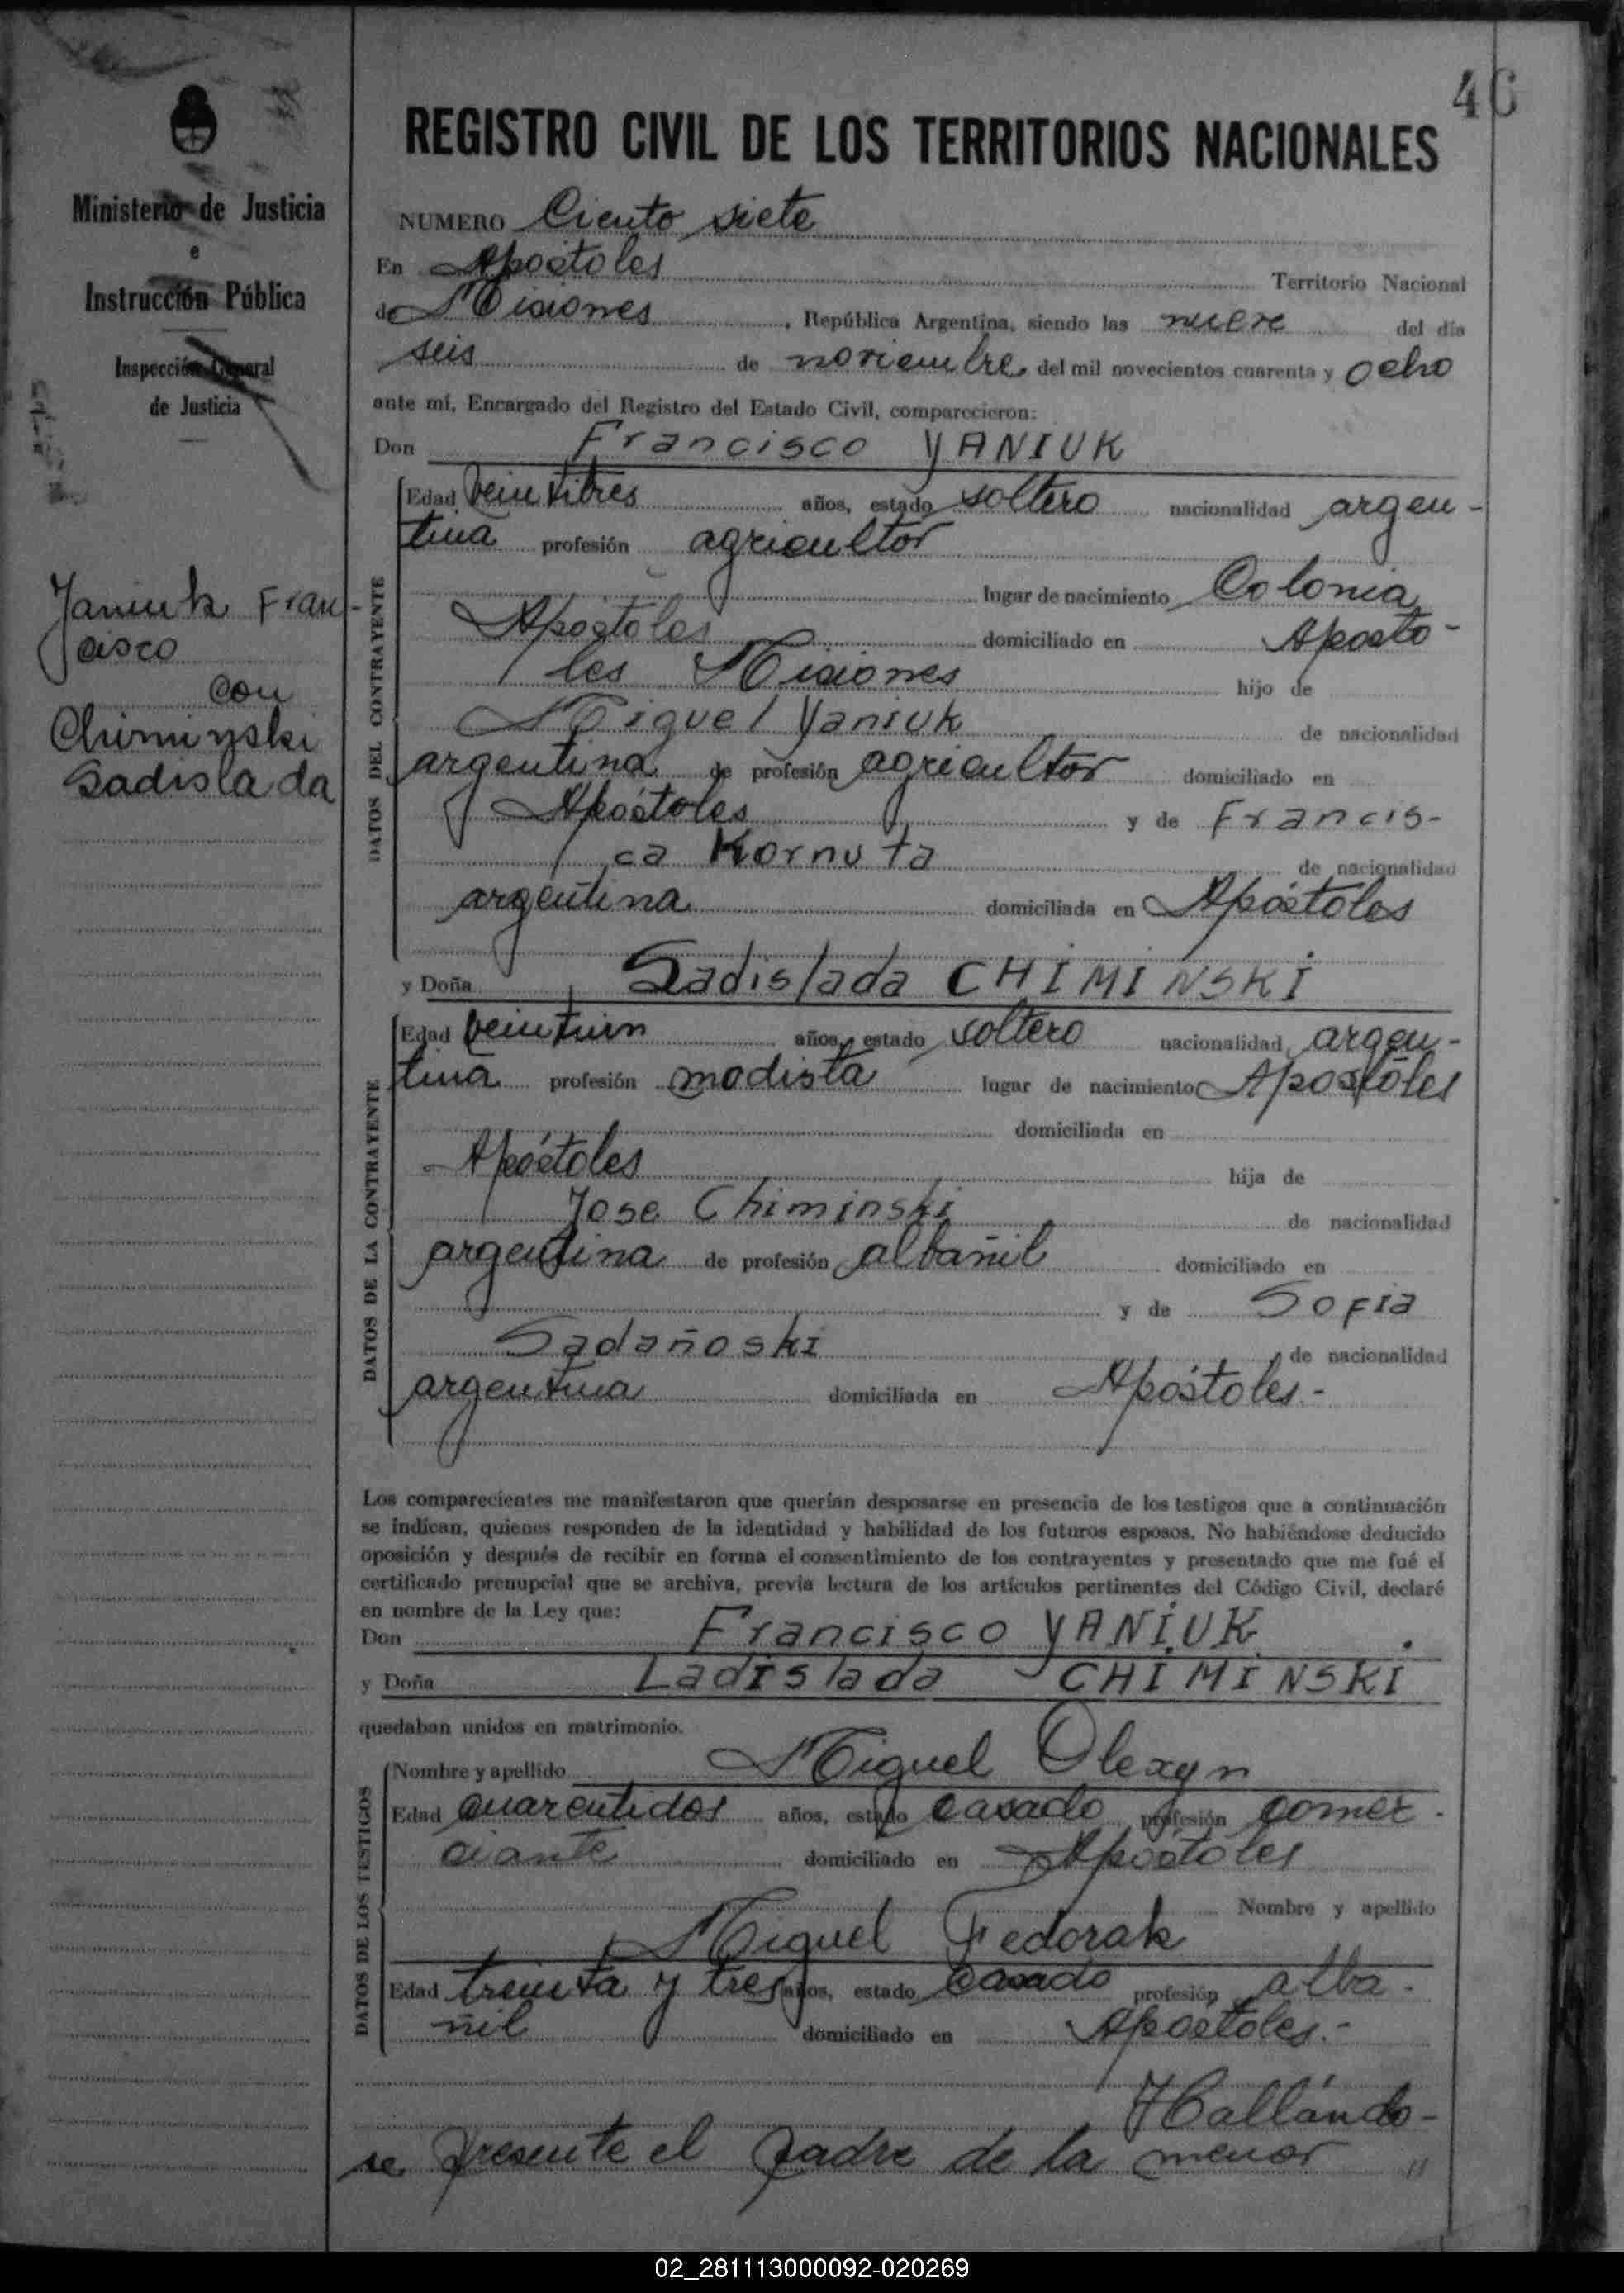 46
REGISTRO CIVIL DE LOS TERRITORIOS NACIONALES
Ministerio de Justicia
e
Instrucción Pública
Inspección General
de Justicia
Yaniuk Fran-
cisco
con
Chiminski
Ladislada
NUMERO Ciento siete
En Apóstoles Territorio Nacional
de Misiones, República Argentina, siendo las nueve del día
seis de noviembre del mil novecientos cuarenta y ocho
ante mí, Encargado del Registro del Estado Civil, comparecieron:
Don Francisco YANIUK
DATOS DEL CONTRAYENTE
Edad veintitres años, estado soltero nacionalidad argen-
tina profesión agricultor
lugar de nacimiento Colonia
Apostoles domiciliado en Aposto-
les Misiones hijo de
Miguel Yaniuk de nacionalidad
argentina de profesión agricultor domiciliado en
Apóstoles y de Francis-
ca Kornuta de nacionalidad
argentina domiciliada en Apóstoles
y Doña Ladislada CHIMINSKI
DATOS DE LA CONTRAYENTE
Edad veintiun años, estado soltero nacionalidad argen-
tina profesión modista lugar de nacimiento Apostóles
domiciliada en
Apóstoles hija de
Jose Chiminski de nacionalidad
argentina de profesión albañil domiciliado en
y de Sofia
Sadañoski de nacionalidad
argentina domiciliada en Apóstoles.-
Los comparecientes me manifestaron que querían desposarse en presencia de los testigos que a continuación
se indican, quienes responden de la identidad y habilidad de los futuros esposos. No habiéndose deducido
oposición y después de recibir en forma el consentimiento de los contrayentes y presentado que me fué el
certificado prenupcial que se archiva, previa lectura de los artículos pertinentes del Código Civil, declaré
en nombre de la Ley que:
Don Francisco YANIUK
y Doña Ladislada CHIMINSKI
quedaban unidos en matrimonio.
DATOS DE LOS TESTIGOS
Nombre y apellido Miguel Olexyn
Edad cuarentidos años, estado casado profesión comer-
ciante domiciliado en Apóstoles
Nombre y apellido
Miguel Fedorak
Edad treinta y tres años, estado casado profesión alba-
ñil domiciliado en Apóstoles.-
Hallándo-
se presente el padre de la menor //
02_281113000092-020269